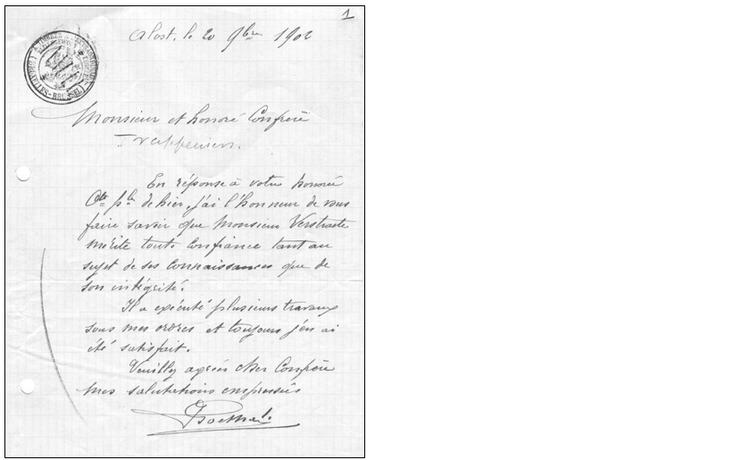 1
Alost, le 20 9bre 1902
Monsieur et honoré Confrère
En réponse à votre honorée
Cte ple de hier, j'ai l'honneur de vous
faire savoir que Monsieur Verstraete
mérite toute confiance tant au
sujet de ses connaissances que de
son intégrité.
Il a exécuté plusieurs travaux
sous mes ordres et toujours j'en ai
été satisfait.
Veuillez agréer cher Confrère
mes salutations empressées